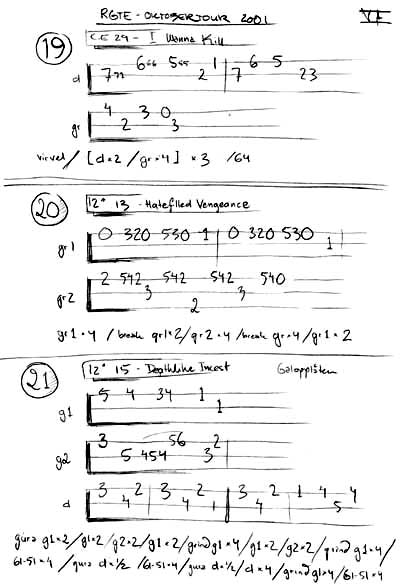 RGTE - OKTOBERTOUR 2001 VI
19 C.E 29 - I Wanna Kill
d 7 6 5 2 1 7 6 5 23
gr 4 2 3 0 3
virvel / [d×2 / gr×4] × 3 /64
20 12" 13 - Hatefilled Vengeance
gr1 0 320 530 1 0 320 530 1
gr2 2 542 3 542 2 542 3 540
gr1×4 / break gr1×2 / gr2×4 / break gr×4 / gr1×2
21 12" 15 - Deathlike Incest
g1 5 4 34 1 1
g2 3 5 454 56 3 2
d 3 4 2 3 4 2 1 3 4 2 1 4 5 4
g1×2 / g1×2 / g2×2 / g1×2 / grind g1×4 / g1×2 / g2×2 / grind g1×4 /
61-51×4 / d×½ / 61-51×4 / d×½ / d×4 / grind g1×4 / 61-51×4